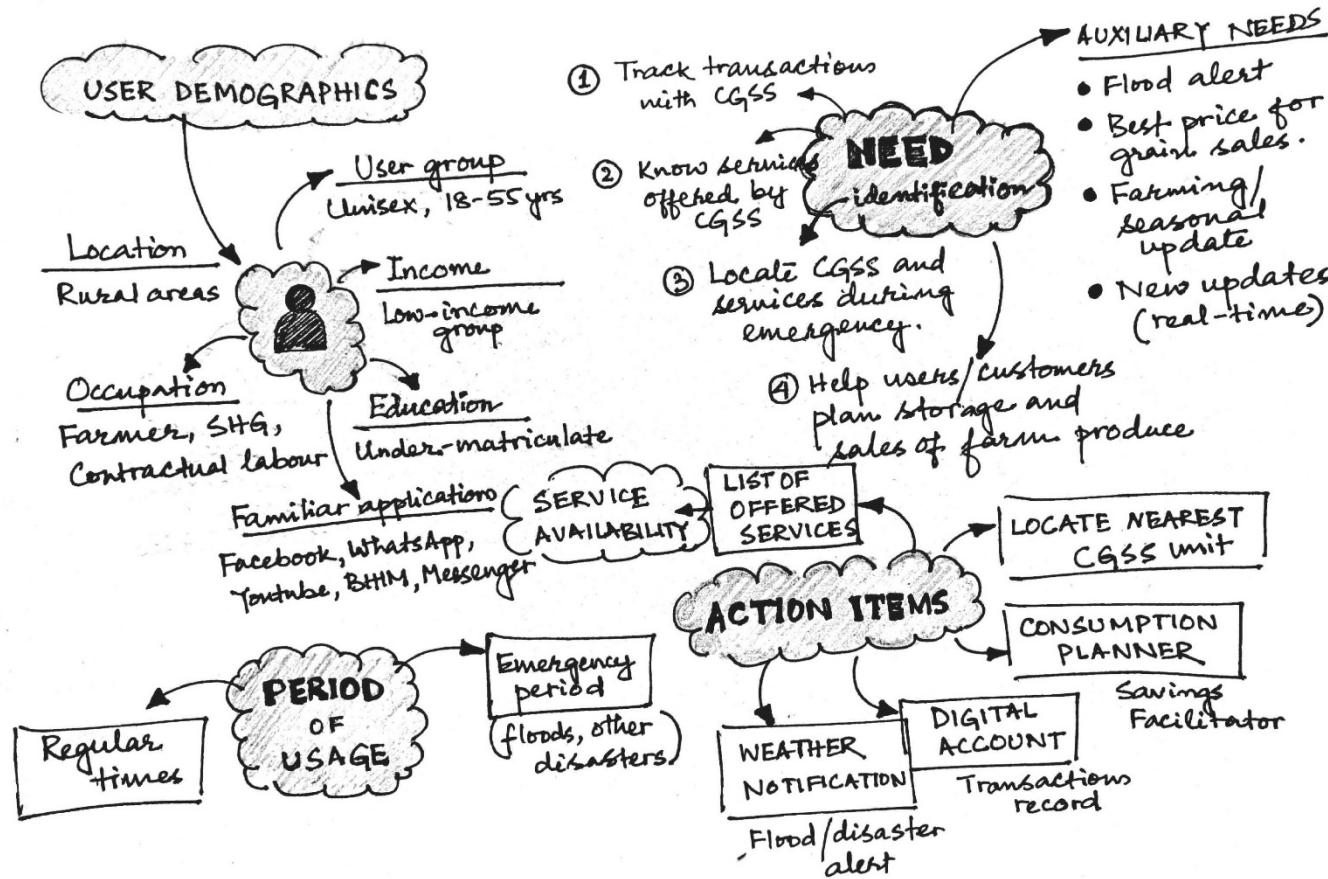 USER DEMOGRAPHICS
User group
Unisex, 18-55 yrs
Location
Rural areas
Income
Low-income
group
Occupation
Farmer, SHG,
Contractual labour
Education
Under-matriculate
Familiar applications
Facebook, WhatsApp,
Youtube, BHIM, Messenger
NEED
identification
① Track transactions
with CGSS
② Know services
offered by
CGSS
③ Locate CGSS and
services during
emergency.
④ Help users/customers
plan storage and
sales of farm produce
AUXILIARY NEEDS
• Flood alert
• Best price for
grain sales.
• Farming/
seasonal
update
• New updates
(real-time)
SERVICE
AVAILABILITY
LIST OF
OFFERED
SERVICES
ACTION ITEMS
LOCATE NEAREST
CGSS unit
CONSUMPTION
PLANNER
Savings
Facilitator
DIGITAL
ACCOUNT
Transactions
record
WEATHER
NOTIFICATION
Flood/disaster
alert
PERIOD
OF
USAGE
Regular
times
Emergency
period
(floods, other
disasters)